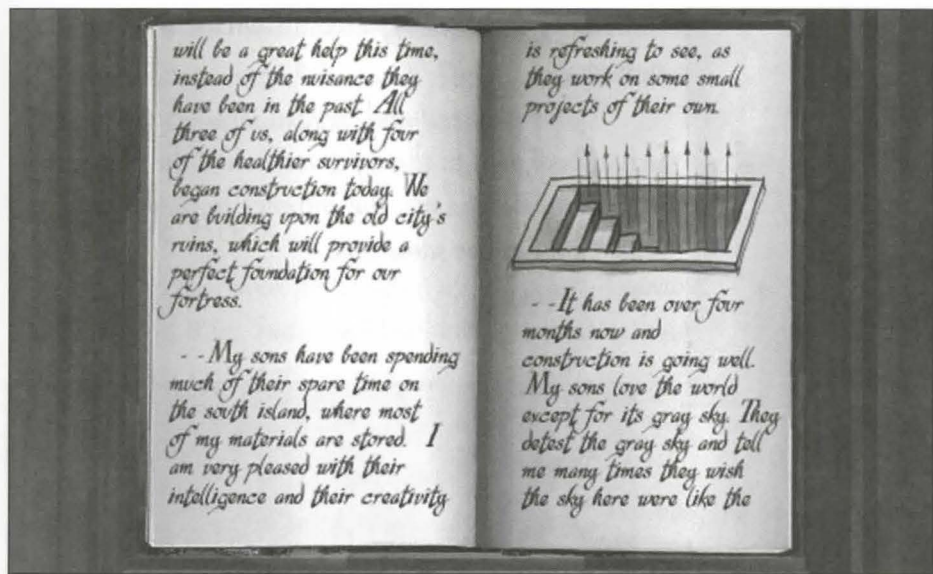 will be a great help this time,
instead of the nuisance they
have been in the past. All
three of us, along with four
of the healthier survivors,
began construction today. We
are building upon the old city's
ruins, which will provide a
perfect foundation for our
fortress.
- -My sons have been spending
much of their spare time on
the south island, where most
of my materials are stored. I
am very pleased with their
intelligence and their creativity
is refreshing to see, as
they work on some small
projects of their own.
- -It has been over four
months now and
construction is going well.
My sons love the world
except for its gray sky. They
detest the gray sky and tell
me many times they wish
the sky here were like the